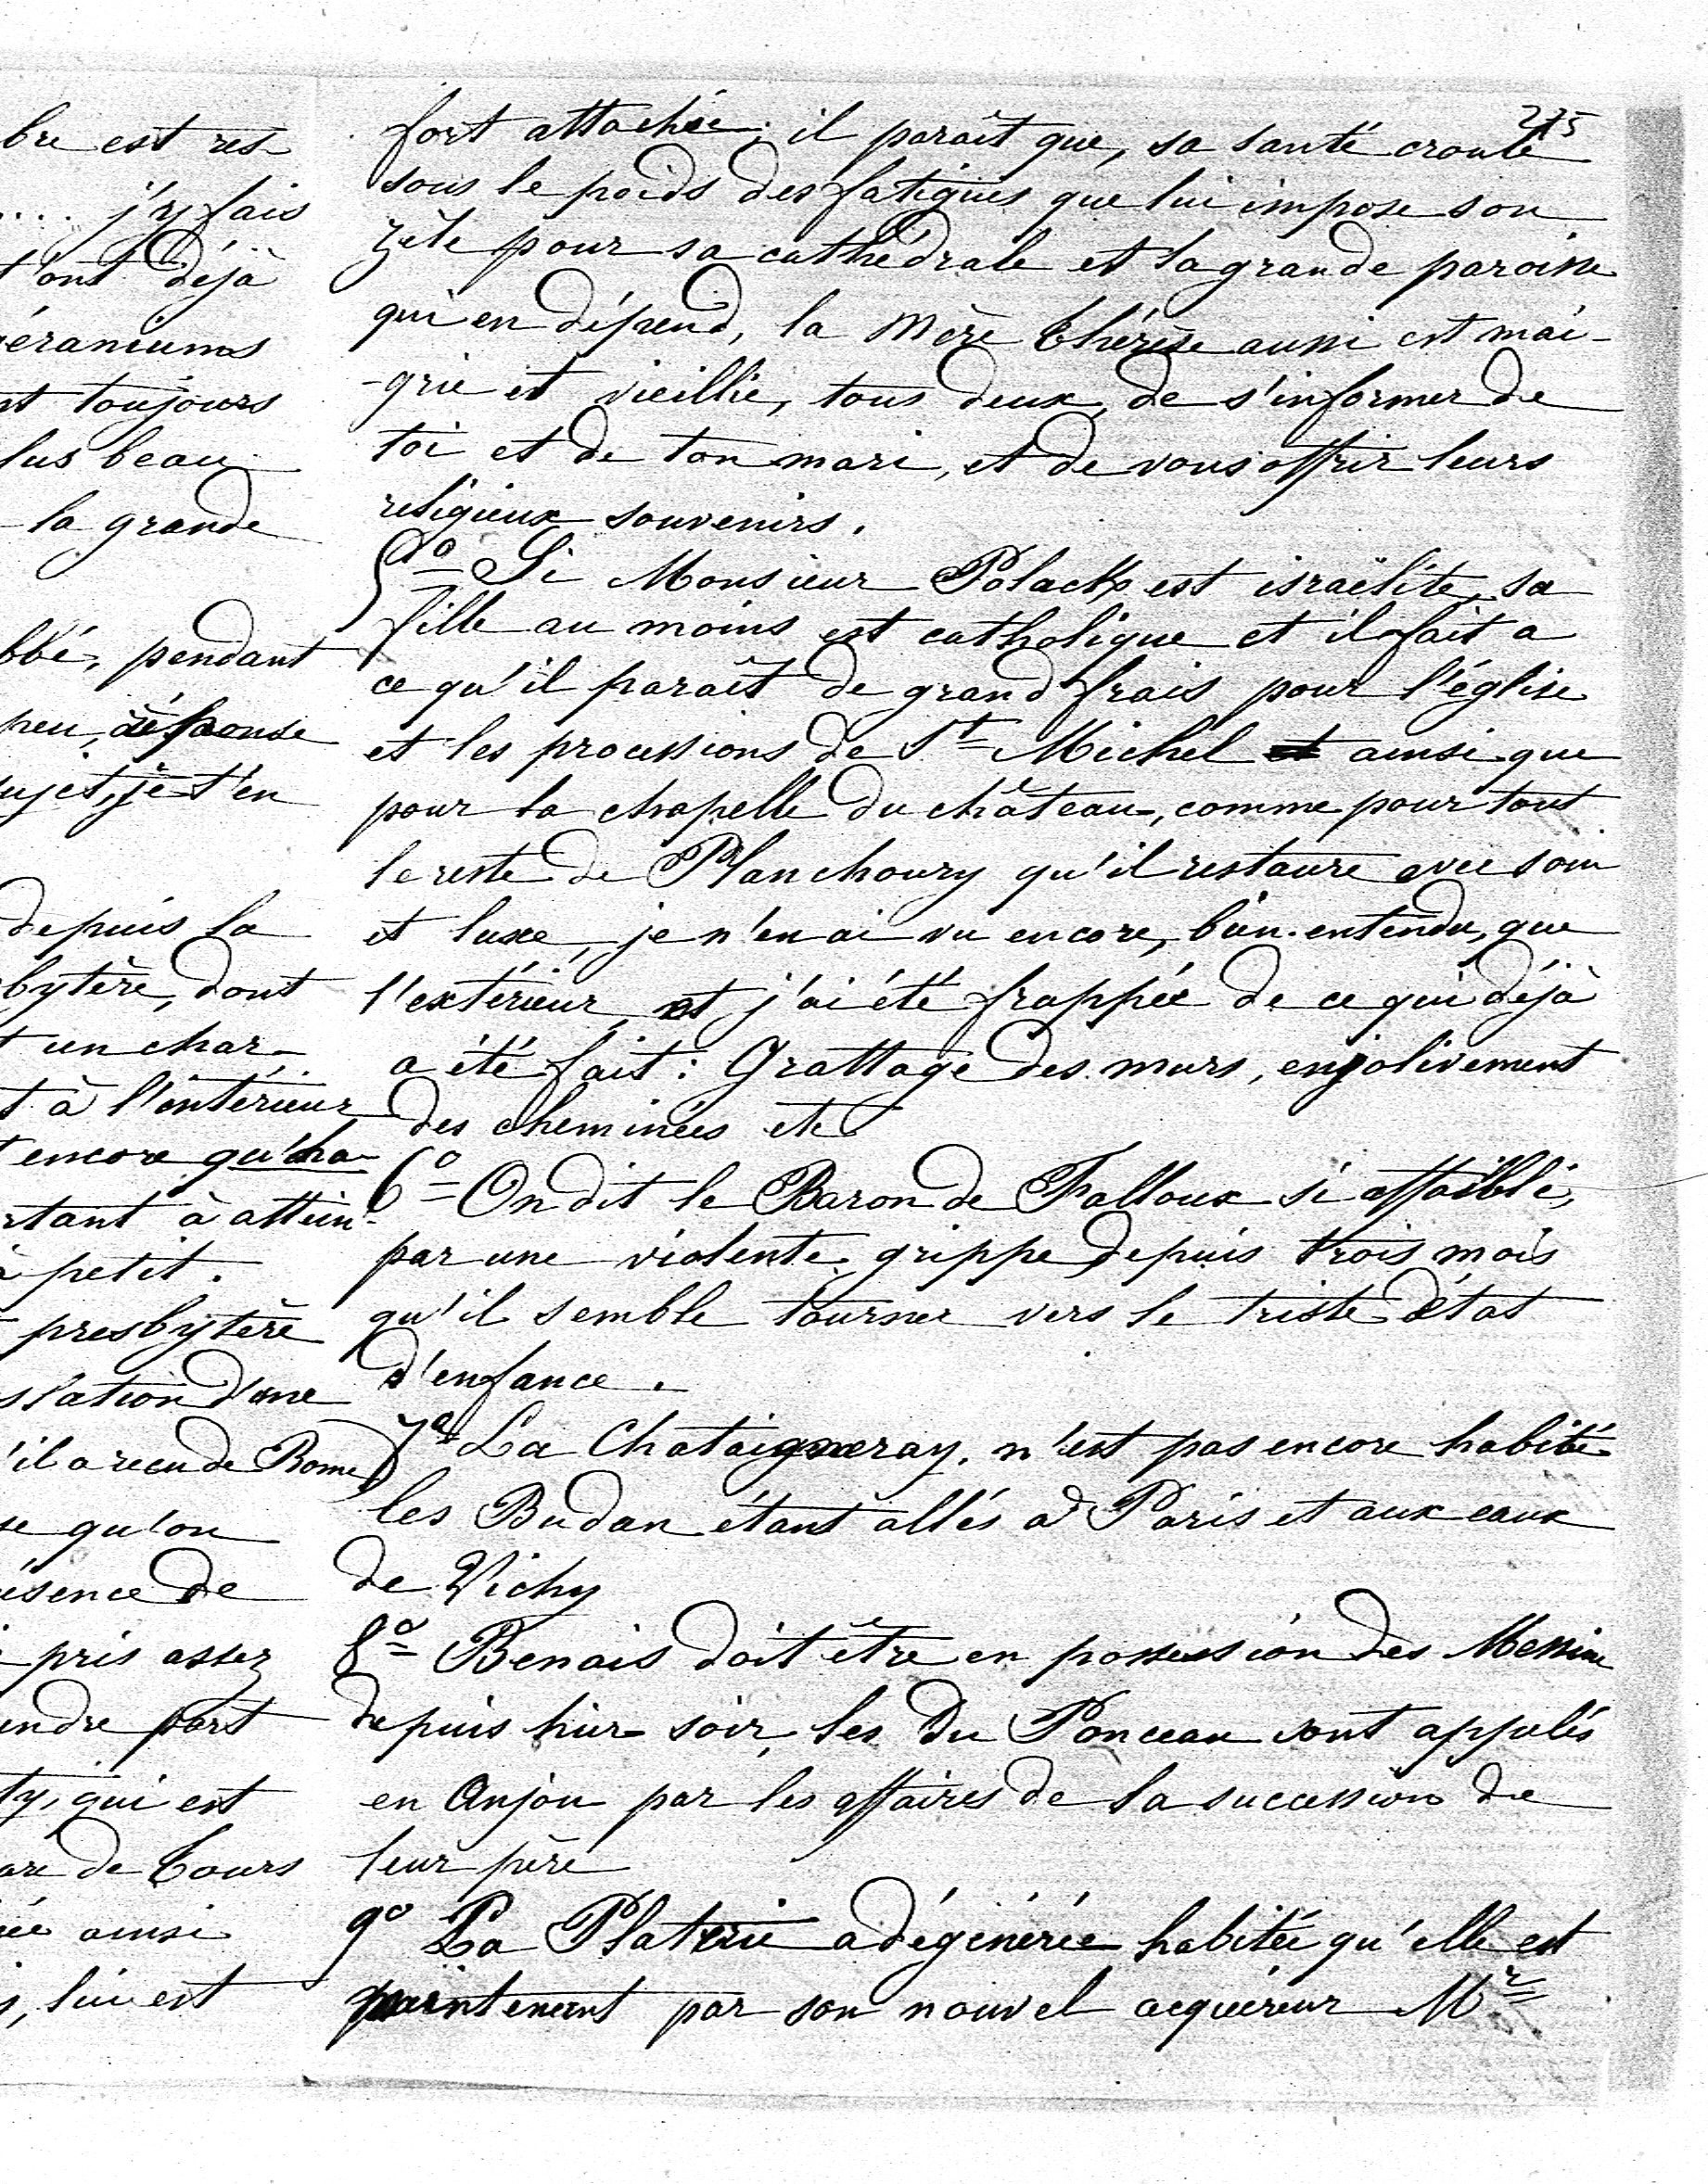 bre est res-
.... j'y fais
t'ont déjà
géraniums
nt toujours
lus beau
la grande
bbé, pendant
peu, réponse
sujet, je t'en
depuis la
bytère, dont
t un char-
t à l'intérieur
encore qu'
rtant à attein-
à petit.
presbytère
station d'une
'il a recu de Rome
se qu'on
résence de
pris assez
endre part
ty, qui est
are de Tours
ée ainsi
s, lui est
275
fort attachée; il paraît que, sa santé croule
sous le poids des fatigues que lui impose son
zèle pour sa cathédrale et la grande paroisse
qui en dépend, la Mère Thérèse aussi est mai-
-grie et vieillie, tous deux, de s'informer de
toi et de ton mari, et de vous offrir leurs
religieux souvenirs.
5º Si Monsieur Polack est israëlite, sa
fille au moins est catholique et il fait a
ce qu'il paraît de grand frais pour l'église
et les processions de St Michel et ainsi que
pour la chapelle du château, comme pour tout
le reste de Planchoury qu'il restaure avec soin
et luxe, je n'en ai vu encore, bien-entendu, que
l'extérieur, et j'ai été frappée de ce qui déjà
a été fait: Grattage des murs, enjolivement
des cheminées etc
6º On dit le Baron de Falloux si affaibli,
par une violente grippe depuis trois mois
qu'il semble tourner vers le triste état
d'enfance.
7º La Chataigneray, n'est pas encore habité
les Budan étant allés à Paris et aux eaux
de Vichy
8º Benais doit être en possession des Messine
depuis hier soir, les Du Ponceau sont appelés
en Anjou par les affaires de la succession de
leur père
9º La Platerie a dégénérée habitée qu'elle est
maintenant par son nouvel acquéreur Mr